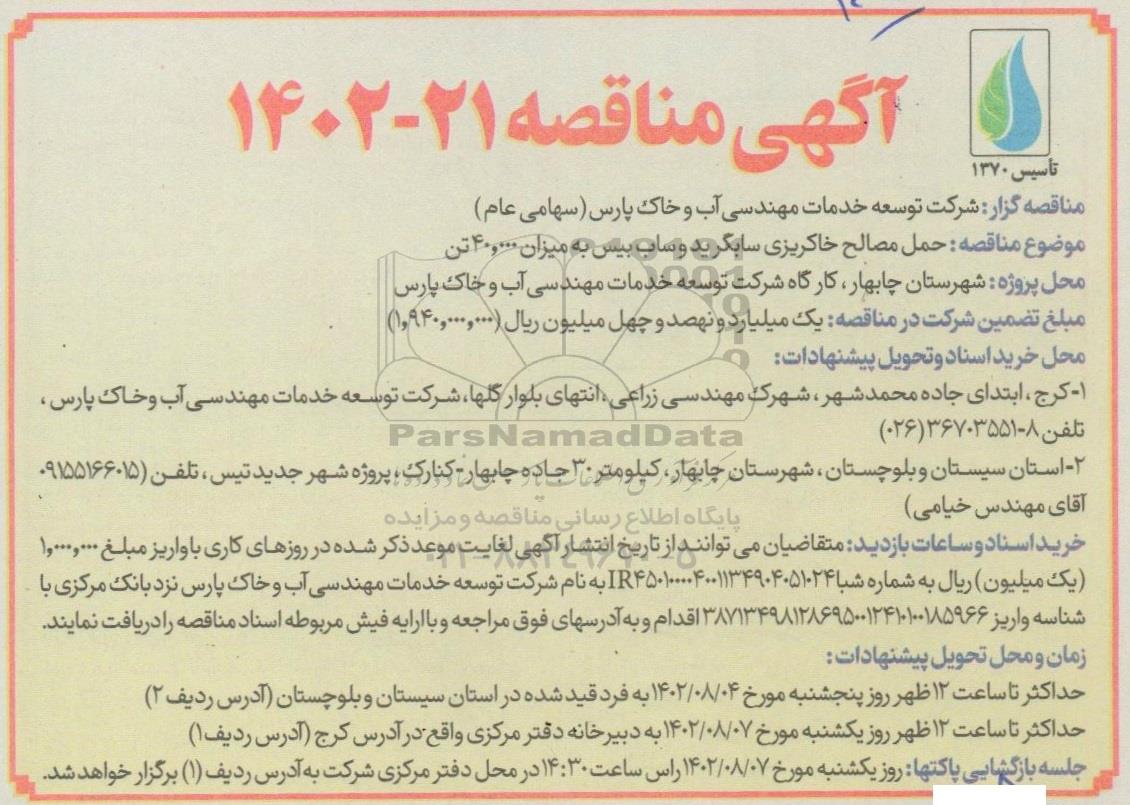 آگهی مناقصه ۲۱-۱۴۰۲
تأسیس ۱۳۷۰
مناقصه گزار: شرکت توسعه خدمات مهندسی آب و خاک پارس (سهامی عام)
موضوع مناقصه: حمل مصالح خاکریزی سابگرید و ساب بیس به میزان ۴۰,۰۰۰ تن
محل پروژه: شهرستان چابهار، کارگاه شرکت توسعه خدمات مهندسی آب و خاک پارس
مبلغ تضمین شرکت در مناقصه: یک میلیارد و نهصد و چهل میلیون ریال (۱,۹۴۰,۰۰۰,۰۰۰)
محل خرید اسناد و تحویل پیشنهادات:
۱-کرج، ابتدای جاده محمدشهر، شهرک مهندسی زراعی، انتهای بلوار گلها، شرکت توسعه خدمات مهندسی آب و خاک پارس،
تلفن ۸-۳۶۷۰۳۵۵۱ (۰۲۶)
ParsNamadData
۲-استان سیستان و بلوچستان، شهرستان چابهار، کیلومتر ۳۰ جاده چابهار-کنارک، پروژه شهر جدید تیس، تلفن (۰۹۱۵۵۱۶۶۰۱۵
آقای مهندس خیامی)
پایگاه اطلاع رسانی مناقصه و مزایده
خرید اسناد و ساعات بازدید: متقاضیان می توانند از تاریخ انتشار آگهی لغایت موعد ذکر شده در روزهای کاری با واریز مبلغ ۱,۰۰۰,۰۰۰
(یک میلیون) ریال به شماره شبا IR۴۵۰۱۰۰۰۰۴۰۰۱۱۳۴۹۰۴۰۵۱۰۲۴ به نام شرکت توسعه خدمات مهندسی آب و خاک پارس نزد بانک مرکزی با
شناسه واریز ۳۸۷۱۳۴۹۸۱۲۸۶۹۵۰۰۱۲۴۱۰۱۰۰۱۸۵۹۶۶ اقدام و به آدرسهای فوق مراجعه و با ارایه فیش مربوطه اسناد مناقصه را دریافت نمایند.
زمان و محل تحویل پیشنهادات:
حداکثر تا ساعت ۱۲ ظهر روز پنجشنبه مورخ ۱۴۰۲/۰۸/۰۴ به فرد قید شده در استان سیستان و بلوچستان (آدرس ردیف ۲)
حداکثر تا ساعت ۱۲ ظهر روز یکشنبه مورخ ۱۴۰۲/۰۸/۰۷ به دبیرخانه دفتر مرکزی واقع در آدرس کرج (آدرس ردیف ۱)
جلسه بازگشایی پاکتها: روز یکشنبه مورخ ۱۴۰۲/۰۸/۰۷ راس ساعت ۱۴:۳۰ در محل دفتر مرکزی شرکت به آدرس ردیف (۱) برگزار خواهد شد.